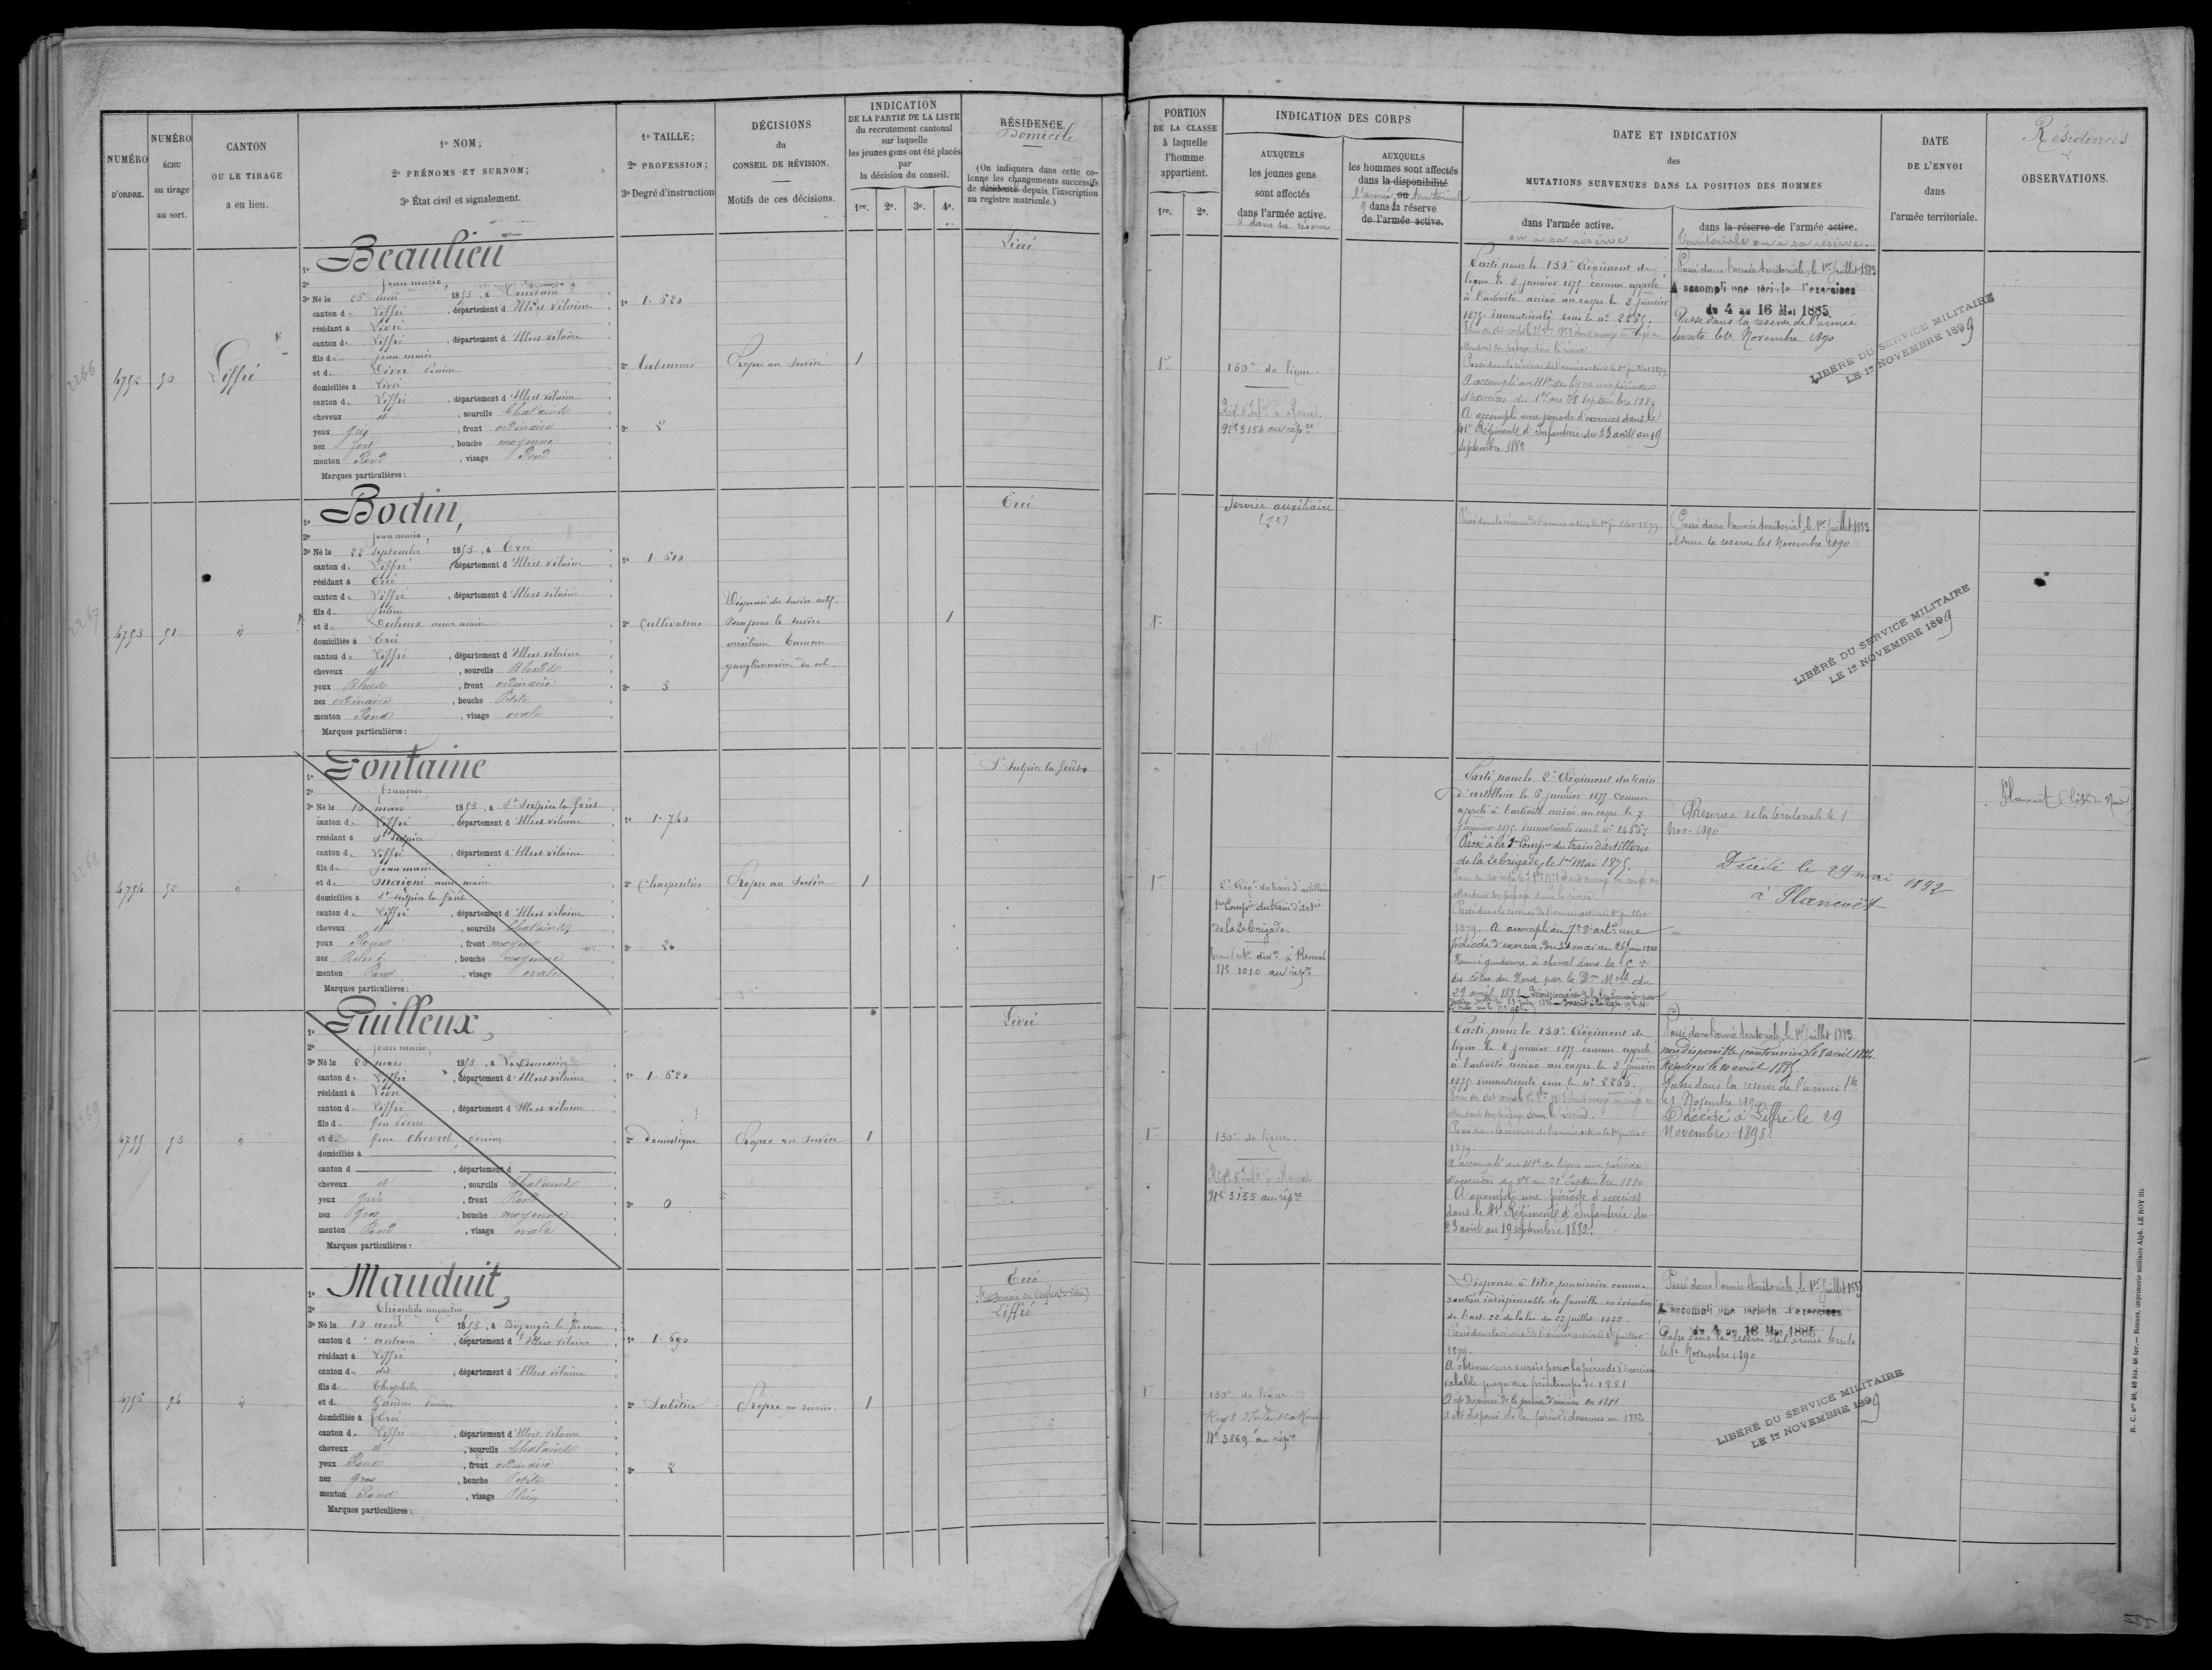 NUMÉRO
D'ORDRE.
NUMÉRO
ÉCHU
au tirage
au sort.
CANTON
OU LE TIRAGE
a eu lieu.
1º NOM;
2º PRÉNOMS ET SURNOM;
3º État civil et signalement.
1º TAILLE;
2º PROFESSION;
3º Degré d'instruction
DÉCISIONS
du
CONSEIL DE RÉVISION.
Motifs de ces décisions.
INDICATION
DE LA PARTIE DE LA LISTE
du recrutement cantonal
sur laquelle
les jeunes gens ont été placés
par
la décision du conseil.
1re. 2e. 3e. 4e.
RÉSIDENCE.
Domicile
(On indiquera dans cette co-
lonne les changements successifs
de résidence depuis l'inscription
au registre matricule.)
PORTION
DE LA CLASSE
à laquelle
l'homme
appartient.
1re. 2e.
INDICATION DES CORPS
AUXQUELS
les jeunes gens
sont affectés
dans l'armée active.
& dans sa réserve
AUXQUELS
les hommes sont affectés
dans la disponibilité
l'armée ou territoriale
& dans la réserve
de l'armée active.
DATE ET INDICATION
des
MUTATIONS SURVENUES DANS LA POSITION DES HOMMES
dans l'armée active.
ou à sa réserve
dans la réserve de l'armée active.
territoriale ou à sa réserve.
DATE
DE L'ENVOI
dans
l'armée territoriale.
Résidences
&
OBSERVATIONS.
2266
4752
50
Liffré
1º Beaulieu
2º Jean marie,
3º Né le 25 mai 1853, à
canton de Liffré, département d'Ille et vilaine
résidant à Livré
canton de Liffré, département d'Ille et vilaine
fils de Jean marie
et de
domiciliés à Livré
canton de Liffré, département d'Ille et vilaine
cheveux et, sourcils Chatains
yeux gris, front ordinaire
nez fort, bouche moyenne
menton Rond, visage Rond
Marques particulières:
1º 1.620
2º Laboureur
3º 2
Propre au service
1
Livré
1re
130e de ligne.
Régt d'Infie à Rennes.
Nº 3154 au répre
Parti pour le 130e Régiment de
ligne le 8 janvier 1875 comme appelé
à l'activité arrivé au corps le 8 janvier
1875 immatriculé sous le nº 2265.
Passé dans la réserve de l'armée active le 1er juillet 1879
A accompli au 41e de ligne une période
d'exercices du 1er au 28 septembre 1880
A accompli une période d'exercices dans le
41e Régiment d'Infanterie du 23 août au 19
septembre 1882
Passé dans l'armée territoriale, le 1er juillet 1883
A accompli une période d'exercices
du 4 au 16 Mai 1885
Passé dans la réserve de l'armée
territle le 1er Novembre 1890
LIBÉRÉ DU SERVICE MILITAIRE
LE 1er NOVEMBRE 1899
2267
4753
51
id
1º Bodin,
2º Jean marie,
3º Né le 22 septembre 1853, à Ercé
canton de Liffré, département d'Ille et vilaine
résidant à Ercé
canton de Liffré, département d'Ille et vilaine
fils de Julien
et de
domiciliés à Ercé
canton de Liffré, département d'Ille et vilaine
cheveux et, sourcils Blonds
yeux Bleus, front ordinaire
nez ordinaire, bouche Petite
menton Rond, visage ovale
Marques particulières:
1º 1.610
2º Cultivateur
3º 3
Dispensé du service actif.
Bon pour le service
auxiliaire Tumeur
ganglionnaire du col.
1
Ercé
1re
Service auxiliaire
Passé dans la réserve de l'armée active le 1er juillet 1879.
Passé dans l'armée territoriale, le 1er juillet 1883
et dans la réserve le 1er Novembre 1890
LIBÉRÉ DU SERVICE MILITAIRE
LE 1er NOVEMBRE 1899
2268
4754
52
id
1º Fontaine
2º François
3º Né le 10 mars 1853, à St Sulpice la forêt
canton de Liffré, département d'Ille et vilaine
résidant à St Sulpice
canton de Liffré, département d'Ille et vilaine
fils de Jean marie
et de Maigné anne marie
domiciliés à St Sulpice la forêt
canton de Liffré, département d'Ille et vilaine
cheveux et, sourcils Chatains
yeux Roux, front moyen
nez Relevé, bouche moyenne
menton Rond, visage ovale
Marques particulières:
1º 1.740
2º Charpentier
3º
Propre au Service
1
St Sulpice la forêt
1re
2e Régt du train d'artillerie
1re Compie du train d'artie
de la 2e brigade.
Nº 1010 au répre
Parti pour le 2e Régiment du train
d'artillerie le 6 janvier 1875 comme
appelé à l'activité arrivé au corps le 7
janvier 1875 immatriculé sous le nº 2455.
Passé à la 1re Compie du train d'artillerie
de la 2e brigade, le 1er Mai 1875.
Passé dans la réserve de l'armée active le 1er juillet
1879. A accompli au 7e d'artie une
période d'exercices du 30 mai au 26 juin 1880
Nommé gendarme à cheval dans la Cie
des Côtes du Nord par le Don Mlle du
29 avril 1881
Réserve de la territoriale le 1
Nov. 1890
Décédé le 29 mai 1892
à Plancoët
Plancoët (Côtes du Nord)
2269
4755
53
id
1º Guilleux,
2º Jean marie,
3º Né le 20 mars 1853, à
canton de Liffré, département d'Ille et vilaine
résidant à Livré
canton de Liffré, département d'Ille et vilaine
fils de feu Pierre
et de feue Chevrel
domiciliés à
canton d, département d
cheveux et, sourcils Chatains
yeux gris, front Rond
nez gros, bouche moyenne
menton Rond, visage ovale
Marques particulières:
1º 1.620
2º Domestique
3º 0
Propre au service
1
Livré
1re
130e de ligne.
Régt d'Infie à Rennes
Nº 3155 au répre
Parti pour le 130e Régiment de
ligne le 8 janvier 1875 comme appelé
à l'activité arrivé au corps le 8 janvier
1875 immatriculé sous le nº 2266.
Passé dans la réserve de l'armée active le 1er juillet
1879.
A accompli au 41e de ligne une période
d'exercices du 1er au 28 Septembre 1880
A accompli une période d'exercices
dans le 41e Régiment d'Infanterie du
23 août au 19 septembre 1882.
Passé dans l'armée territoriale, le 1er juillet 1883.
non disponible (cantonnier) le 8 avril 1884.
Réintégré le 10 août 1885.
Passé dans la réserve de l'armée tle
le 1 Novembre 1890
Décédé à Liffré le 29
Novembre 1893.
2270
4756
54
id
1º Mauduit,
2º Théophile augustin
3º Né le 10 août 1853, à Bazouges la Pérouse
canton d'antrain, département d'Ille et vilaine
résidant à Liffré
canton de dit, département d'Ille et vilaine
fils de Théophile
et de
domiciliés à Ercé
canton de Liffré, département d'Ille et vilaine
cheveux et, sourcils Chatains
yeux Roux, front ordinaire
nez gros, bouche Petite
menton Rond, visage Plein
Marques particulières:
1º 1.690
2º Sabotier
3º 2
Propre au service.
1
Ercé
Liffré
1re
130e de ligne
Régt d'Infantie à Rennes
Nº 3869 au répre
Dispensé à titre provisoire comme
soutien indispensable de famille en exécution
de l'art. 22 de la loi du 27 juillet 1872.
Passé dans la réserve de l'armée active le 1er juillet
1879.
A obtenu un sursis pour la période d'exercices
valable jusqu'au printemps de 1881
A été dispensé de la période d'exercices en 1881
A été dispensé de la période d'exercices en 1882
Passé dans l'armée territoriale, le 1er juillet 1883
A accompli une période d'exercices
du 4 au 16 Mai 1885
Passé dans la réserve de l'armée territle
le 1er Novembre 1890
LIBÉRÉ DU SERVICE MILITAIRE
LE 1er NOVEMBRE 1899
R. C. nos 46, 46 bis, 46 ter. — Rennes, imprimerie militaire Alph. LE ROY fils